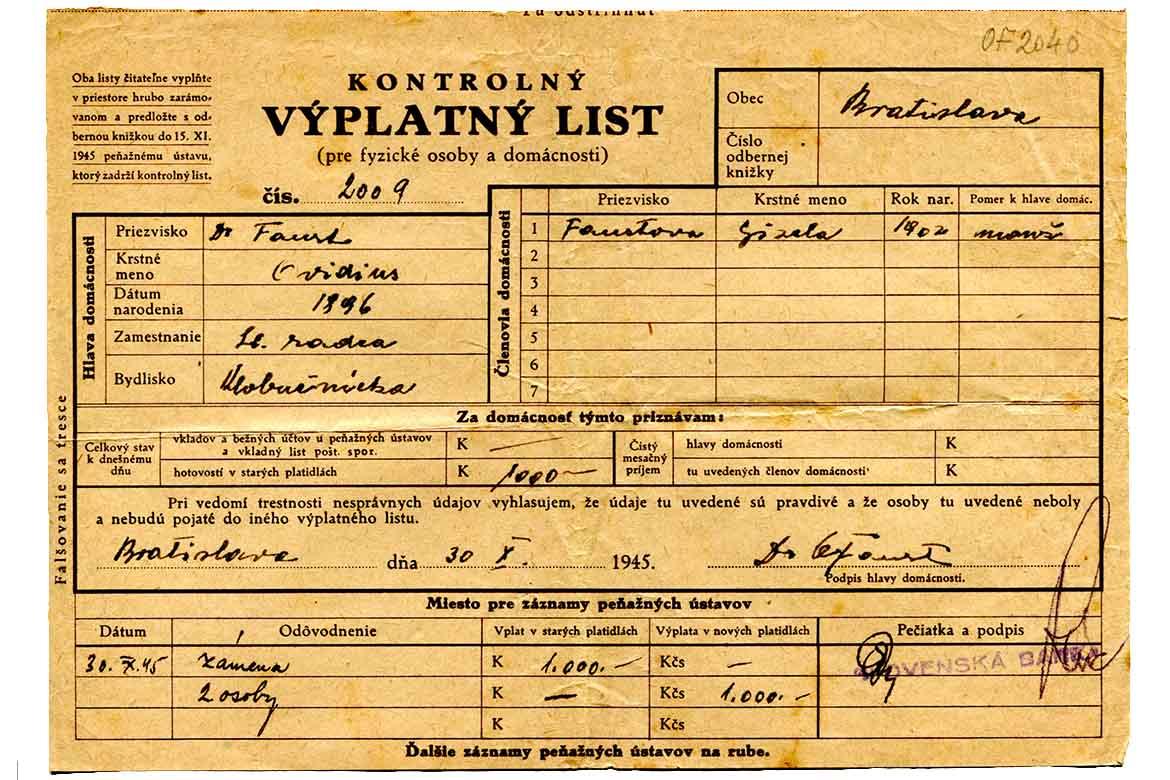 Tu odstrihnúť
OF 2040
Oba listy čitateľne vyplňte
v priestore hrubo zarámo-
vanom a predložte s od-
bernou knižkou do 15. XI.
1945 peňažnému ústavu,
ktorý zadrží kontrolný list.
KONTROLNÝ
VÝPLATNÝ LIST
(pre fyzické osoby a domácnosti)
čís. 2009
Obec Bratislava
Číslo
odbernej
knižky
Hlava domácnosti
Priezvisko Dr Faust
Krstné
meno Ovidius
Dátum
narodenia 1896
Zamestnanie radca
Bydlisko Klobučnícka
Členovia domácnosti
Priezvisko Krstné meno Rok nar. Pomer k hlave domác.
1 Faustova Gizela 1902 manž
2
3
4
5
6
7
Falšovanie sa tresce
Za domácnosť týmto priznávam:
Celkový stav
k dnešnému
dňu
vkladov a bežných účtov u peňažných ústavov
a vkladný list pošt. spor. K —
hotovostí v starých platidlách K 1000 —
Čistý
mesačný
príjem
hlavy domácnosti K
tu uvedených členov domácnosti K
Pri vedomí trestnosti nesprávnych údajov vyhlasujem, že údaje tu uvedené sú pravdivé a že osoby tu uvedené neboly
a nebudú pojaté do iného výplatného listu.
Bratislava dňa 30 X. 1945. Dr O Faust
Podpis hlavy domácnosti.
Miesto pre záznamy peňažných ústavov
Dátum Odôvodnenie Vplat v starých platidlách Výplata v nových platidlách Pečiatka a podpis
30. X. 45 zámena K 1.000.— Kčs — SLOVENSKÁ BANKA
2 osoby K — Kčs 1.000.—
K Kčs
Ďalšie záznamy peňažných ústavov na rube.